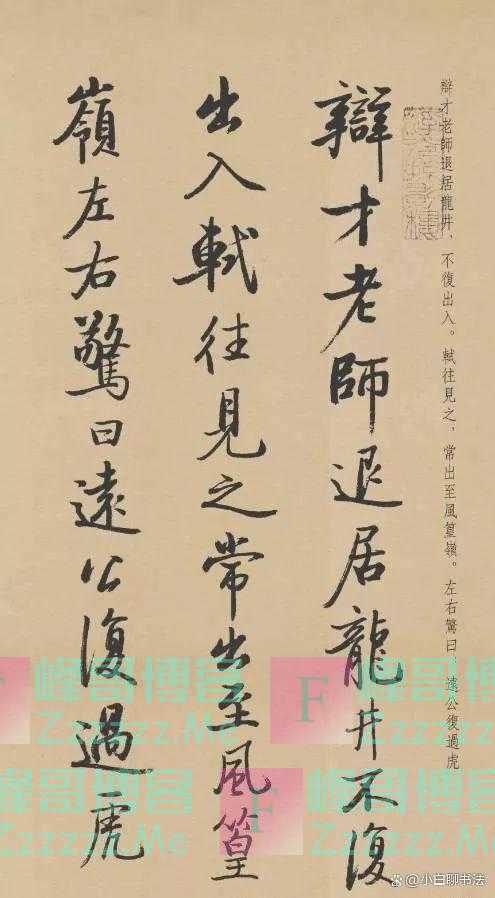 辯才老師退居龍井、不復出入。軾往見之，常出至風篁嶺。左右驚曰：遠公復過虎
辯才老師退居龍井不復
出入軾往見之常出至風篁
嶺左右驚曰遠公復過虎
峰哥博客
Zzzzzz.Me
F
峰哥博客
Zzzzzz.Me
F
峰哥博客
Zzzzzz.Me
@小白聊书法